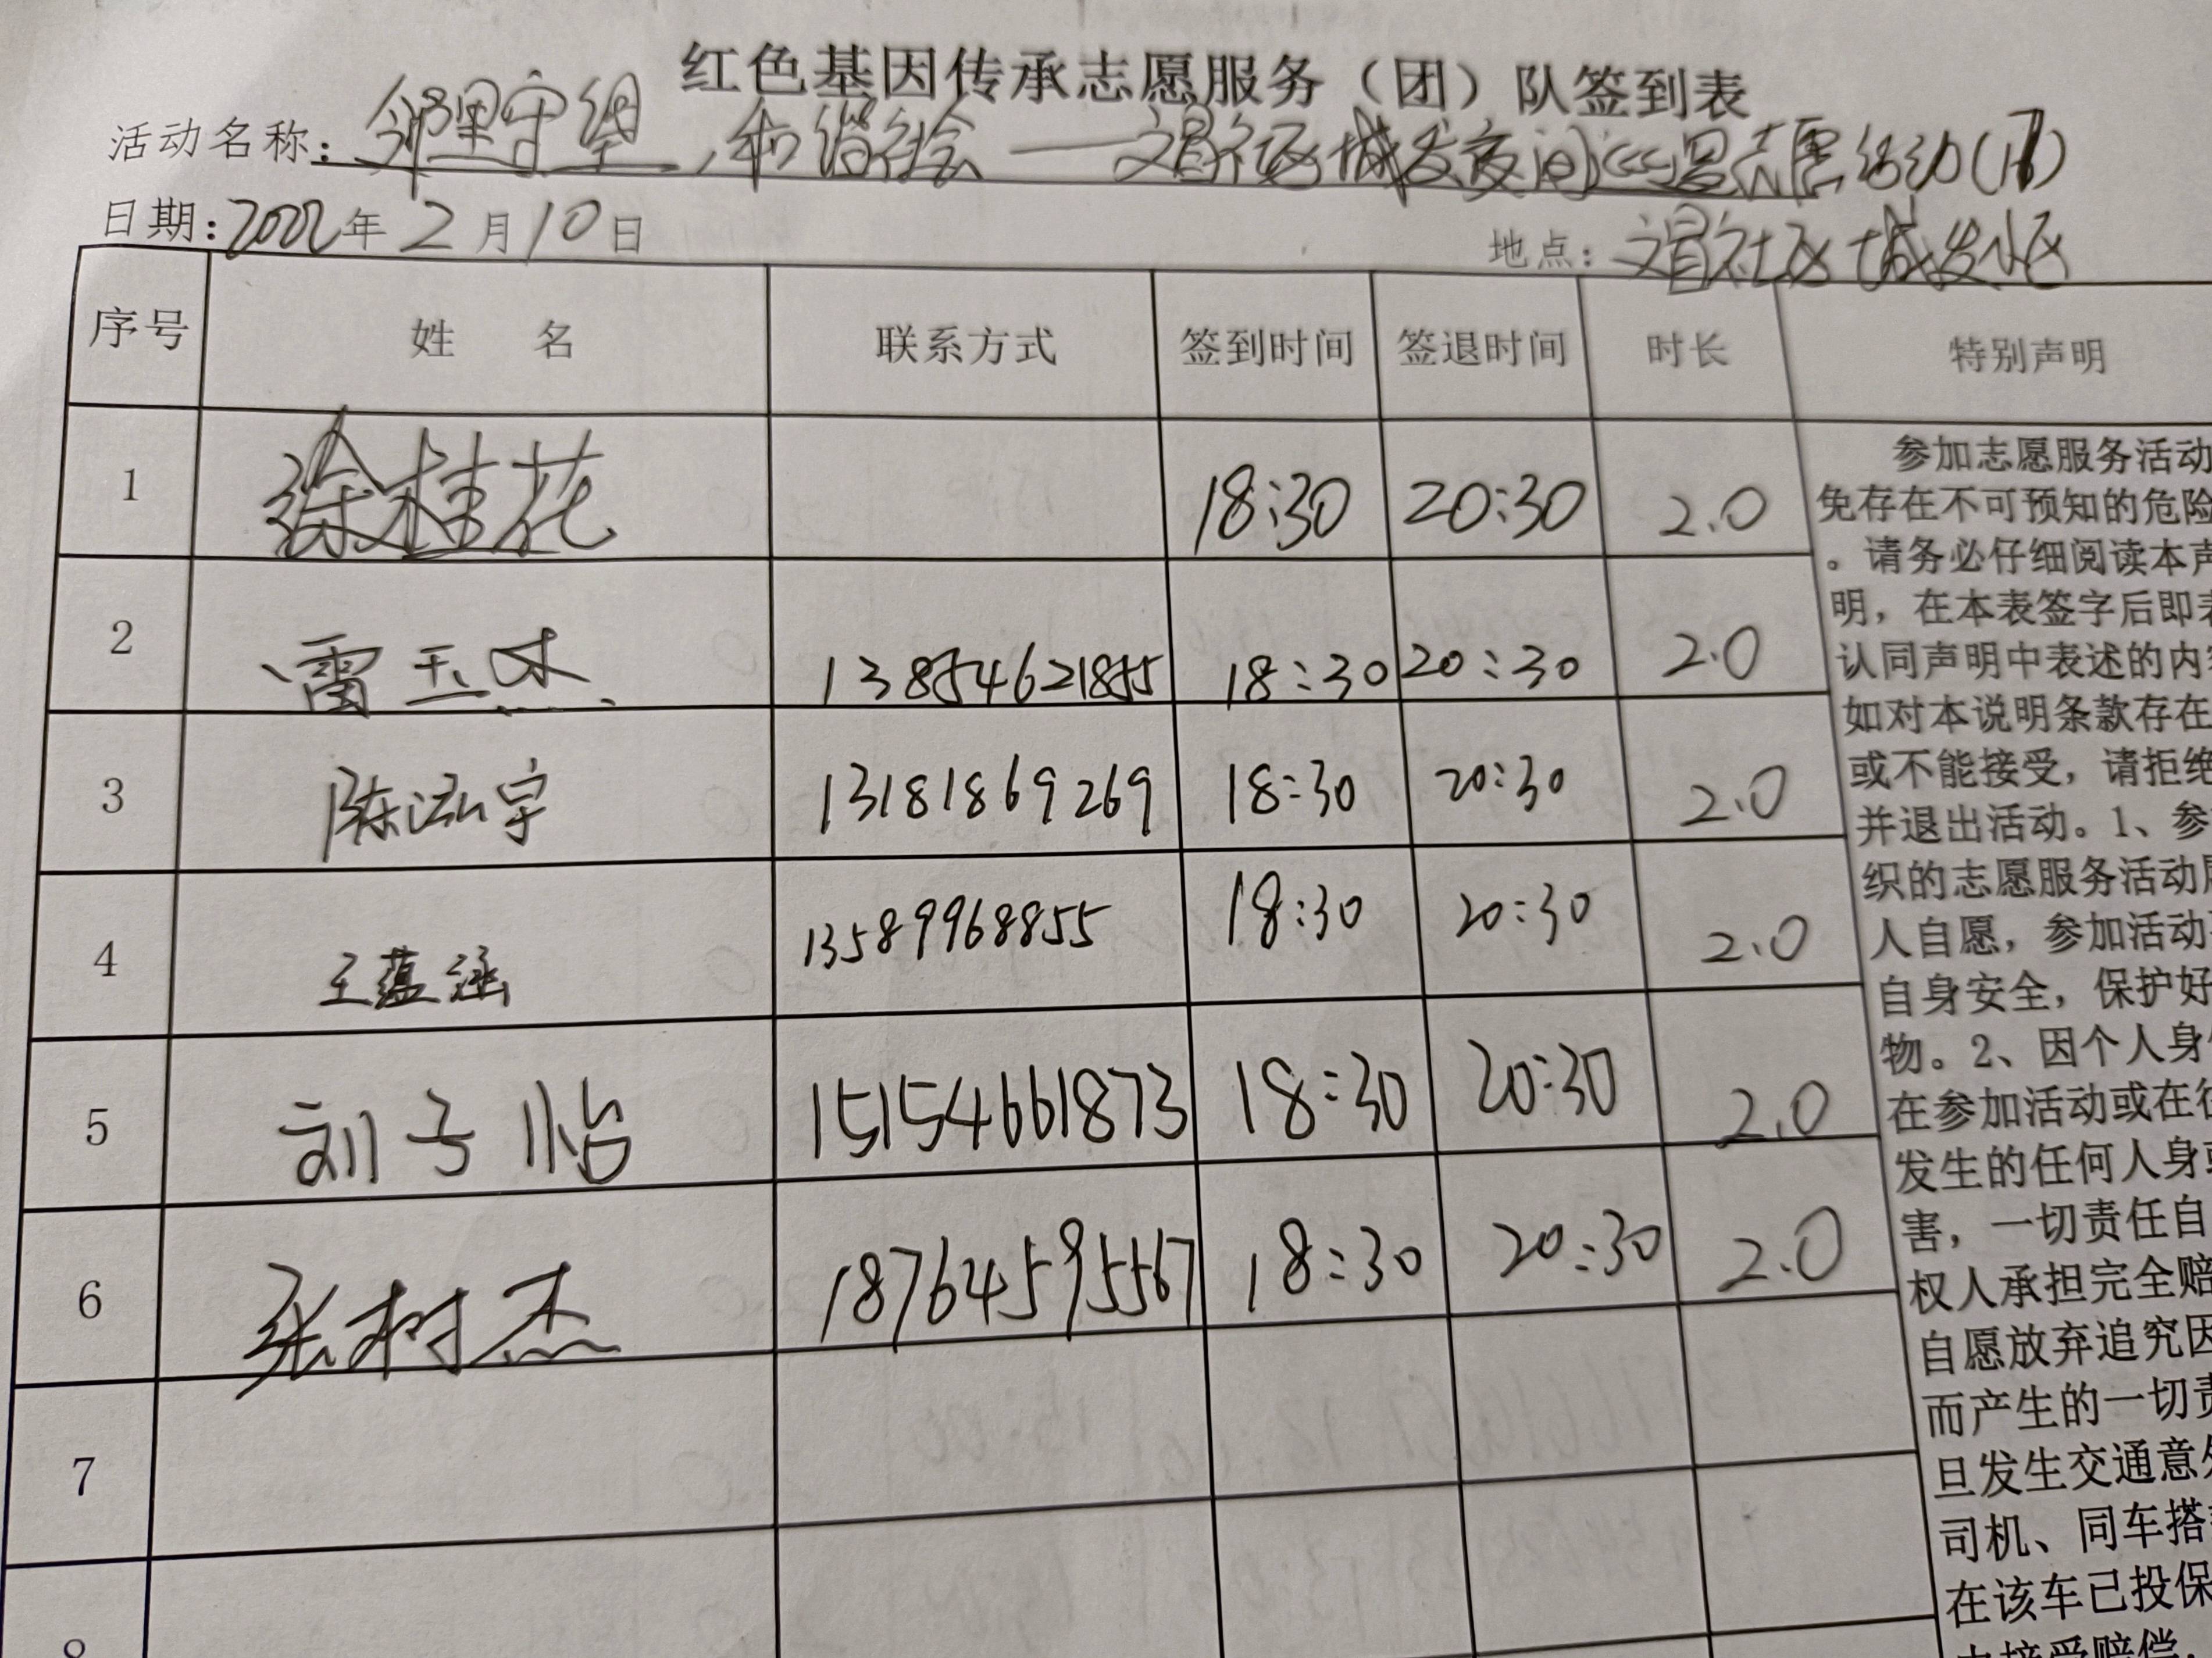 红色基因传承志愿服务（团）队签到表
活动名称：邻里守望，和谐社会——文昌社区城发夜间巡逻志愿活动
日期：2022年2月10日
地点：文昌社区城发小区
序号 姓 名 联系方式 签到时间 签退时间 时长 特别声明
1 徐桂花 18:30 20:30 2.0
2 雷玉杰 18:30 20:30 2.0
3 陈泓宇 13181869269 18:30 20:30 2.0
4 王蕴涵 13589968855 18:30 20:30 2.0
5 刘子怡 15154661873 18:30 20:30 2.0
6 张树杰 18764595567 18:30 20:30 2.0
7
8
参加志愿服务活动
免存在不可预知的危险
。请务必仔细阅读本声
明，在本表签字后即表
认同声明中表述的内容
如对本说明条款存在
或不能接受，请拒绝
并退出活动。1、参
织的志愿服务活动
人自愿，参加活动
自身安全，保护好
物。2、因个人身
在参加活动或在往
发生的任何人身或
害，一切责任自
权人承担完全赔
自愿放弃追究因
而产生的一切责
旦发生交通意外
司机、同车搭
在该车已投保
接受赔偿